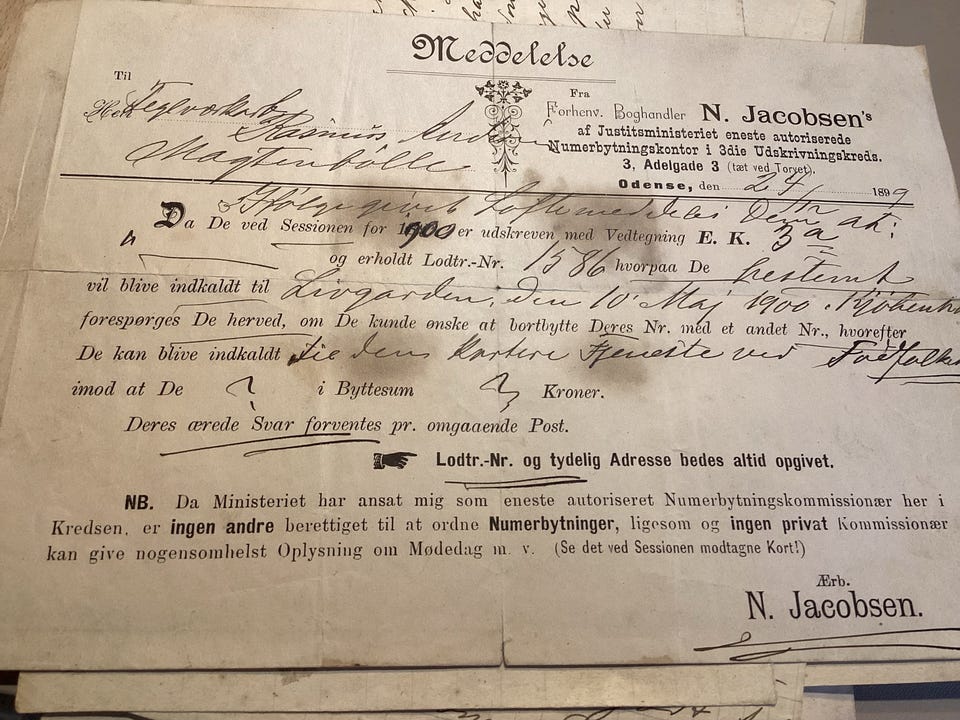 Meddelelse
Til
Fra
Forhenv. Boghandler N. Jacobsen's
Rasmus
af Justitsministeriet eneste autoriserede
Magtenbölle
Numerbytningskontor i 3die Udskrivningskreds.
3, Adelgade 3 (tæt ved Torvet).
Odense, den 24/ 1899
Ifölge givet Löfte meddeles Dem at:
Da De ved Sessionen for 1900 er udskreven med Vedtegning E. K. 3a
og erholdt Lodtr.-Nr. 1586 hvorpaa De bestemt
vil blive indkaldt til Livgarden, den 10' Maj 1900.
forespørges De herved, om De kunde ønske at bortbytte Deres Nr. med et andet Nr., hvorefter
De kan blive indkaldt til den kortere Tjeneste ved Fodfolket
imod at De ? i Byttesum ? Kroner.
Deres ærede Svar forventes pr. omgaaende Post.
Lodtr.-Nr. og tydelig Adresse bedes altid opgivet.
NB. Da Ministeriet har ansat mig som eneste autoriseret Numerbytningskommissionær her i
Kredsen, er ingen andre berettiget til at ordne Numerbytninger, ligesom og ingen privat Kommissionær
kan give nogensomhelst Oplysning om Mødedag m. v. (Se det ved Sessionen modtagne Kort!)
Ærb.
N. Jacobsen.